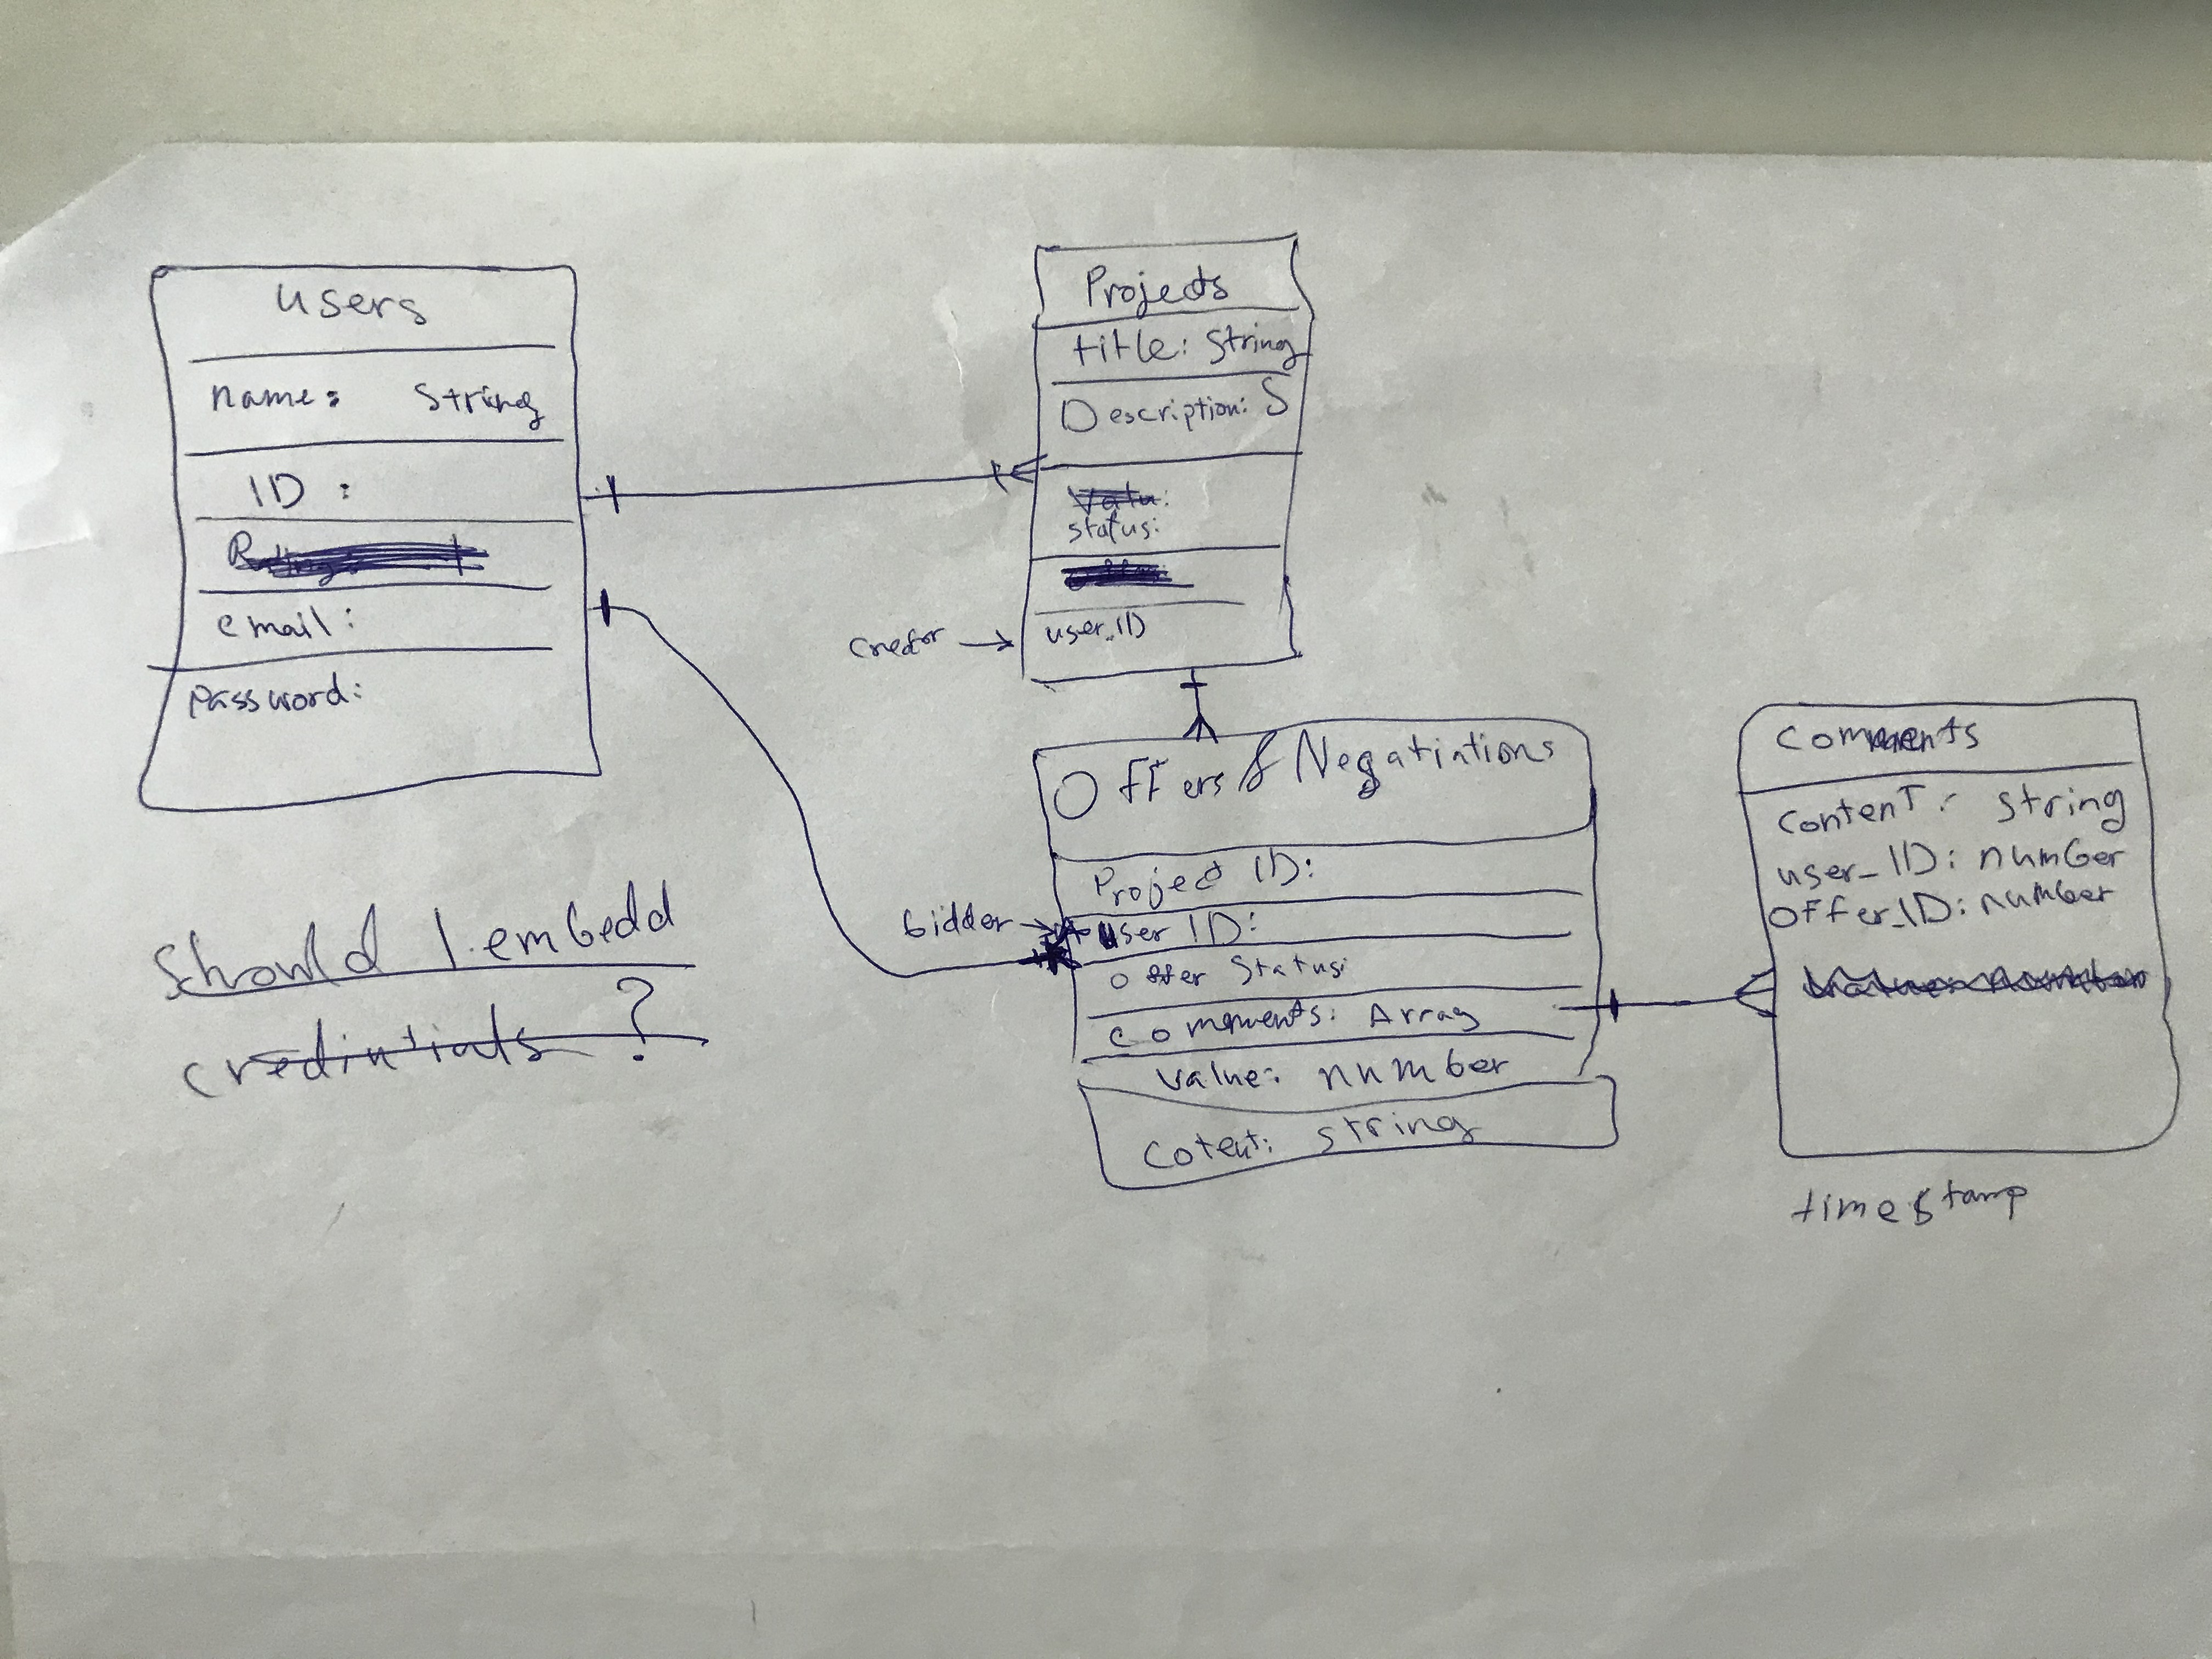 users
name: string
ID:
email:
Password:
Should I embedd
credintials ?
Projects
title: String
Description: S
status:
user_ID
creator →
Offers & Negatintions
Project ID:
bidder →
user ID:
offer Status:
comments: Array
value: number
Cotent: string
Comments
content: string
user_ID: number
offer_ID: number
timestamp